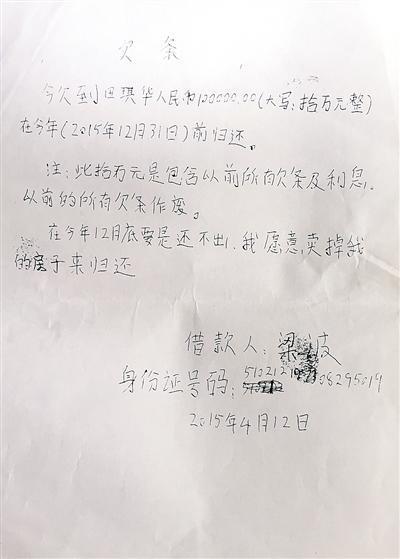 欠条
今欠到田琪华人民币100000.00(大写:拾万元整)
在今年(2015年12月31日)前归还。
注:此拾万元是包含以前所有欠条及利息,
以前的所有欠条作废。
在今年12月底要是还不出,我愿意卖掉我
的房子来归还
借款人:梁波
身份证号码:
2015年4月12日